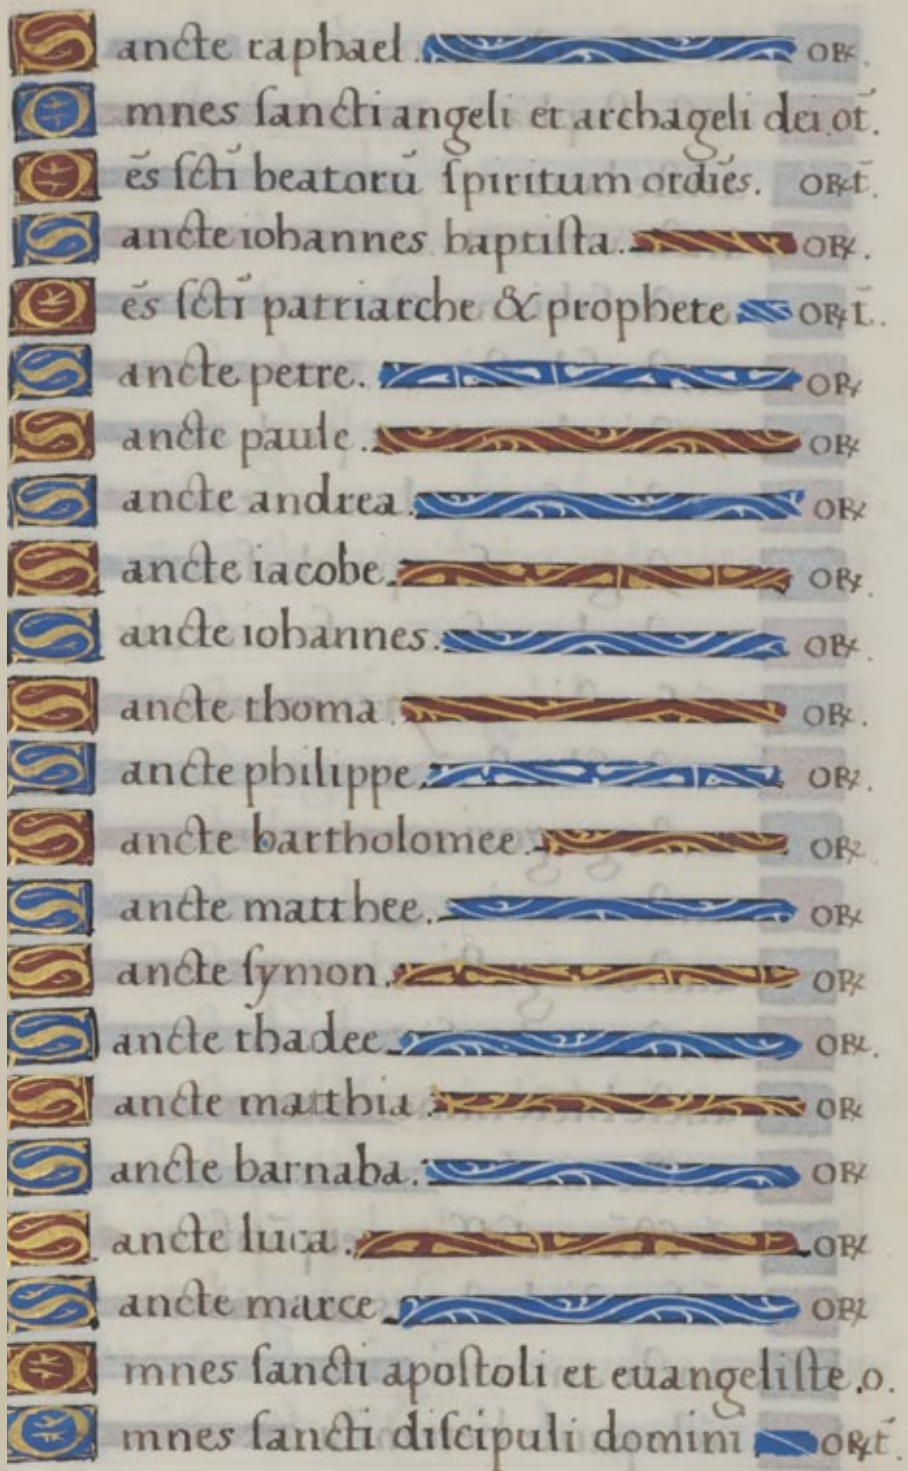 Sancte raphael. OR.
Omnes sancti angeli et archāgeli dei. ot̄.
Oēs sctī beatorū spiritum ordiēs. ORt̄.
Sancte iohannes baptista. OR.
Oēs sctī patriarche & prophete ORt̄.
Sancte petre. OR
Sancte paule. OR
Sancte andrea. OR
Sancte iacobe. OR.
Sancte iohannes. OR.
Sancte thoma. OR.
Sancte philippe. OR.
Sancte bartholomee. OR
Sancte matthee. OR
Sancte symon. OR
Sancte thadee. OR.
Sancte matthia. OR
Sancte barnaba. OR
Sancte luca. OR
Sancte marce. OR
Omnes sancti apostoli et euangeliste. o.
Omnes sancti discipuli domini ORt̄.